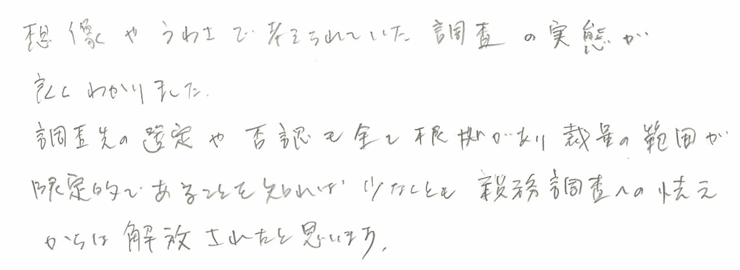 想像やうわさで考えられていた調査の実態が
良くわかりました。
調査先の選定や否認も全て根拠があり裁量の範囲が
限定的であることを知れば少なくとも税務調査への怯え
からは解放されたと思います。